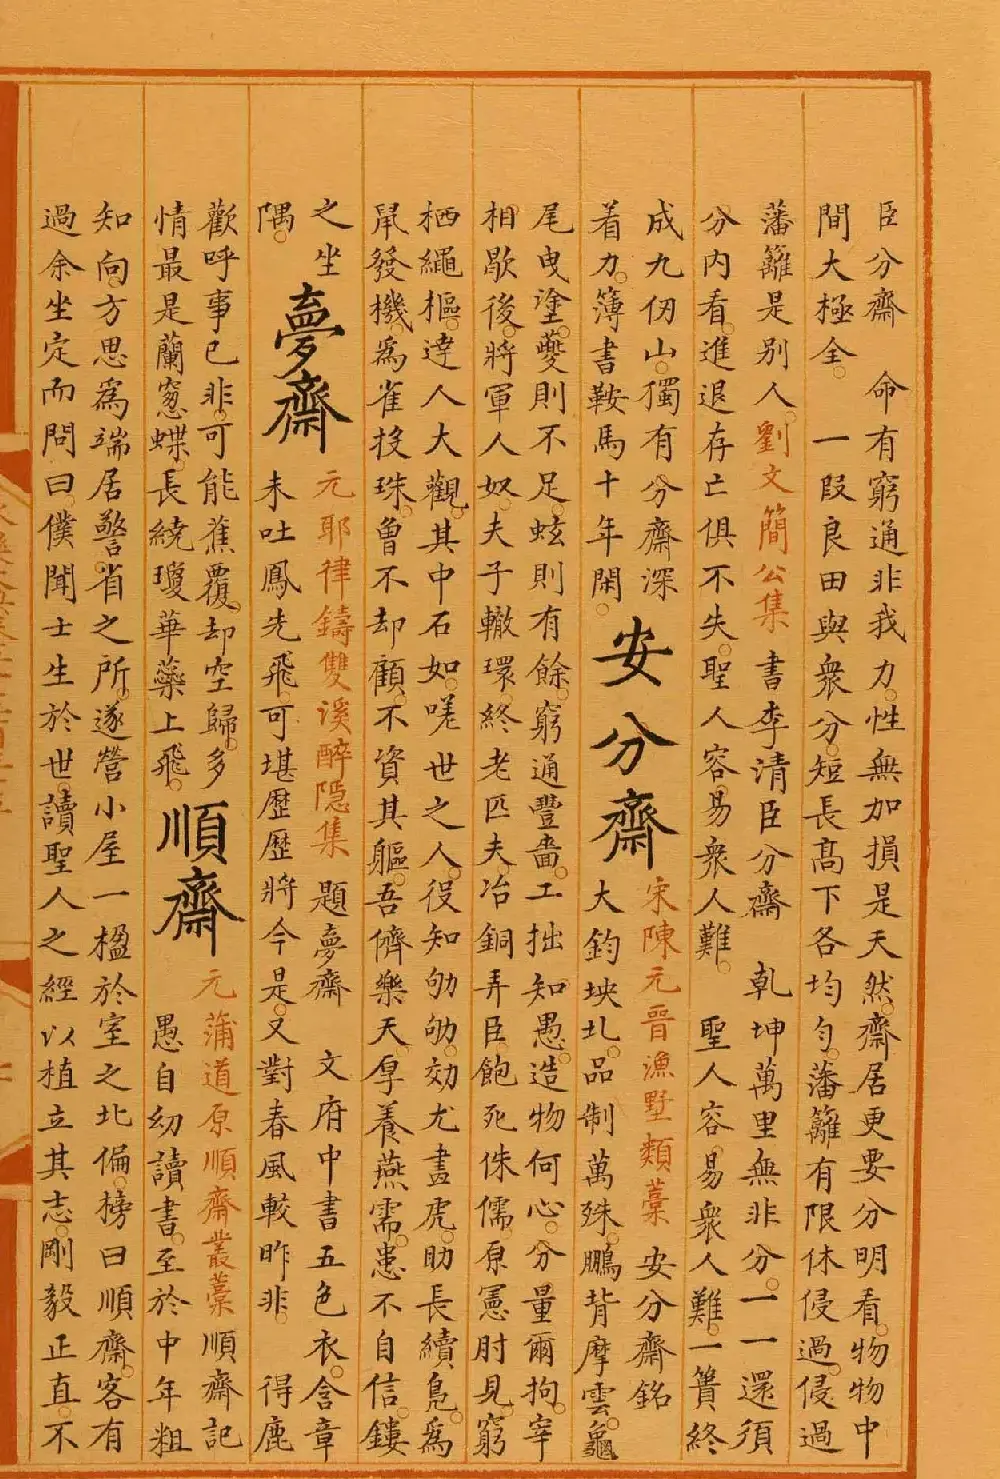 臣分齋　命有窮通非我力。性無加損是天然。齋居更要分明看。物物中
間大極全。　一段良田與衆分。短長高下各均勻。藩籬有限休侵過。侵過
藩籬是别人。劉文簡公集　書李清臣分齋　乾坤萬里無非分。一一還須
分内看。進退存亡俱不失。聖人容易衆人難。　聖人容易衆人難。一簣終
成九仞山。獨有分齋深
着力。簿書鞍馬十年閑。
安分齋
宋陳元晉漁墅類藁　安分齋銘
大鈞坱圠。品制萬殊。鵬背摩雲。龜
尾曳塗。夔則不足。蚿則有餘。窮通豐嗇。工拙知愚。造物何心。分量爾拘。宰
相歇後。將軍人奴。夫子轍環。終老匹夫。冶銅弄臣。飽死侏儒。原憲肘見。窮
栖繩樞。達人大觀。其中石如。嗟世之人。役知劬劬。効尤畫虎。助長續鳬。爲
鼠發機。爲雀投珠。曾不却顧。不資其軀。吾儕樂天。厚養燕需。患不自信。鏤
之坐
隅。
夢齋
元耶律鑄雙溪醉隱集　題夢齋　文府中書五色衣。含章
未吐鳳先飛。可堪歷歷將今是。又對春風較昨非。　得鹿
歡呼事已非。可能蕉覆却空歸。多
情最是蘭窻蝶。長繞瓊華藥上飛。
順齋
元蒲道原順齋叢藁　順齋記
愚自幼讀書。至於中年粗
知向方。思爲端居警省之所。遂營小屋一楹於室之北偏。榜曰順齋。客有
過余坐定而問曰。僕聞士生於世。讀聖人之經以植立其志。剛毅正直。不